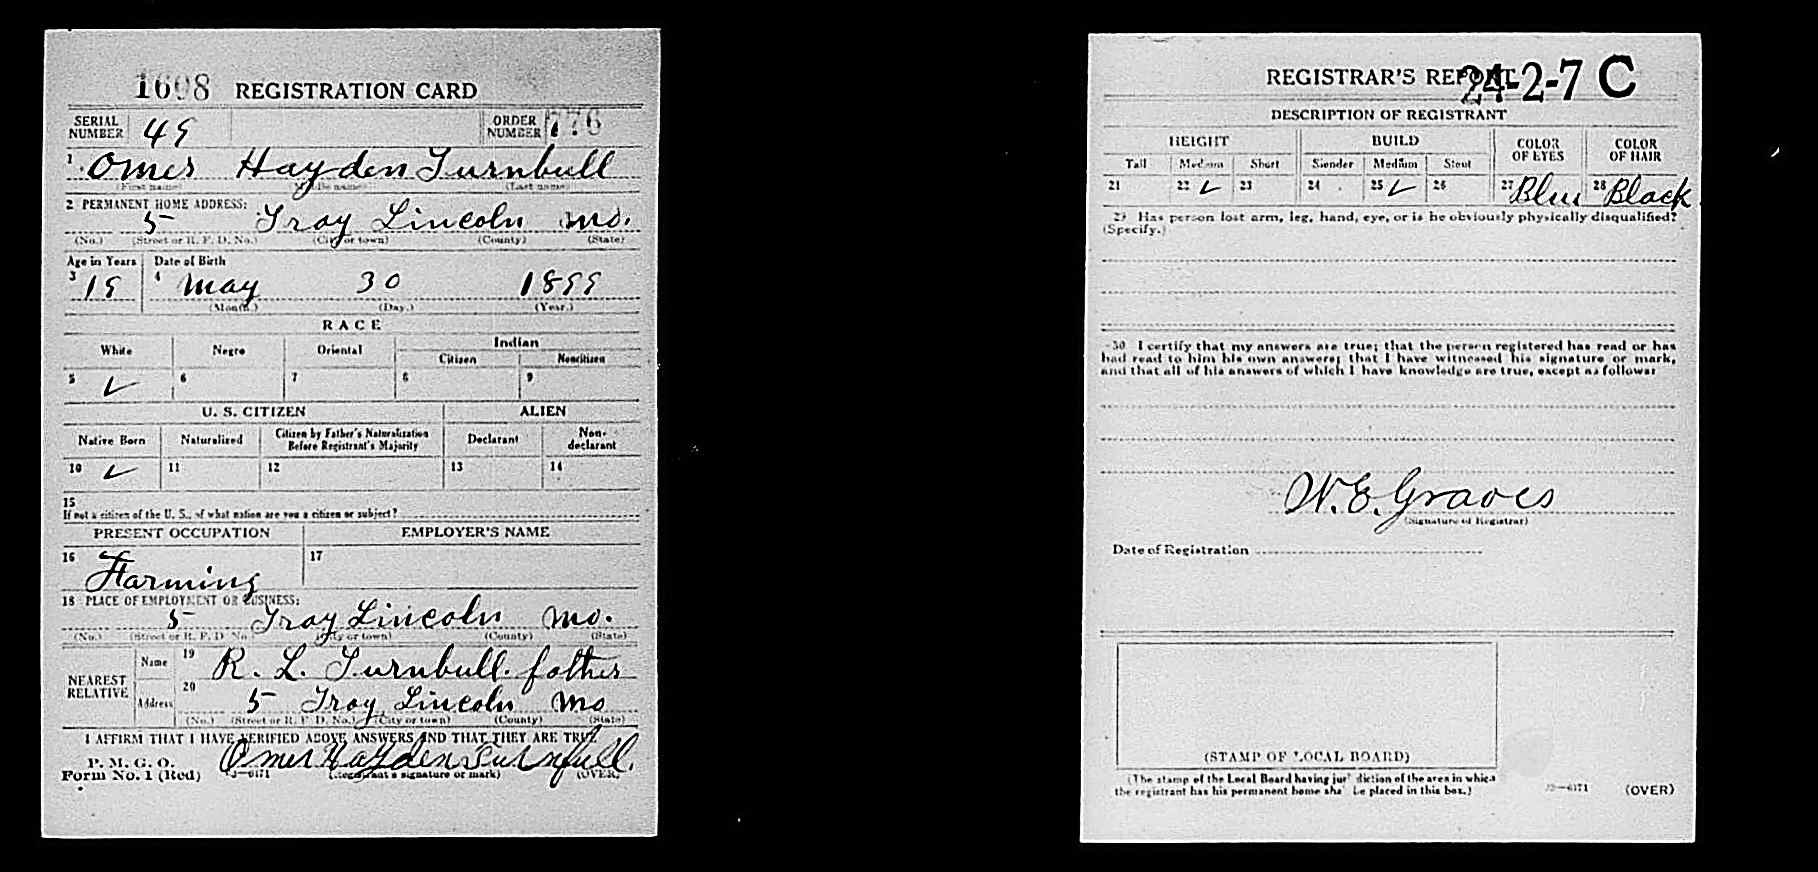 1608 REGISTRATION CARD
SERIAL NUMBER 49 ORDER NUMBER 776
1 Omer Hayden Turnbull
(First name) (Middle name) (Last name)
2 PERMANENT HOME ADDRESS:
5 Troy Lincoln Mo.
(No.) (Street or R. F. D. No.) (City or town) (County) (State)
Age in Years Date of Birth
3 19 4 May 30 1899
(Month.) (Day.) (Year.)
RACE
White Negro Oriental Indian
Citizen Noncitizen
5 ✓ 6 7 8 9
U. S. CITIZEN ALIEN
Native Born Naturalized Citizen by Father's Naturalization Before Registrant's Majority Declarant Non-declarant
10 ✓ 11 12 13 14
15
If not a citizen of the U. S., of what nation are you a citizen or subject?
PRESENT OCCUPATION EMPLOYER'S NAME
16 Farming 17
18 PLACE OF EMPLOYMENT OR BUSINESS:
5 Troy Lincoln Mo.
(No.) (Street or R. F. D. No.) (City or town) (County) (State)
NEAREST RELATIVE Name 19 R. L. Turnbull. father
Address 20 5 Troy Lincoln Mo
(No.) (Street or R. F. D. No.) (City or town) (County) (State)
I AFFIRM THAT I HAVE VERIFIED ABOVE ANSWERS AND THAT THEY ARE TRUE
P. M. G. O.
Form No. 1 (Red) Omer Hayden Turnbull.
(Registrant's signature or mark) (OVER)
REGISTRAR'S REPORT 24-2-7 C
DESCRIPTION OF REGISTRANT
HEIGHT BUILD COLOR OF EYES COLOR OF HAIR
Tall Medium Short Slender Medium Stout
21 22 ✓ 23 24 25 ✓ 26 27 Blue 28 Black
29 Has person lost arm, leg, hand, eye, or is he obviously physically disqualified?
(Specify.)
30 I certify that my answers are true; that the person registered has read or has
had read to him his own answers; that I have witnessed his signature or mark,
and that all of his answers of which I have knowledge are true, except as follows:
W. E. Graves
(Signature of Registrar)
Date of Registration
(STAMP OF LOCAL BOARD)
(The stamp of the Local Board having jurisdiction of the area in which
the registrant has his permanent home shall be placed in this box.)
(OVER)